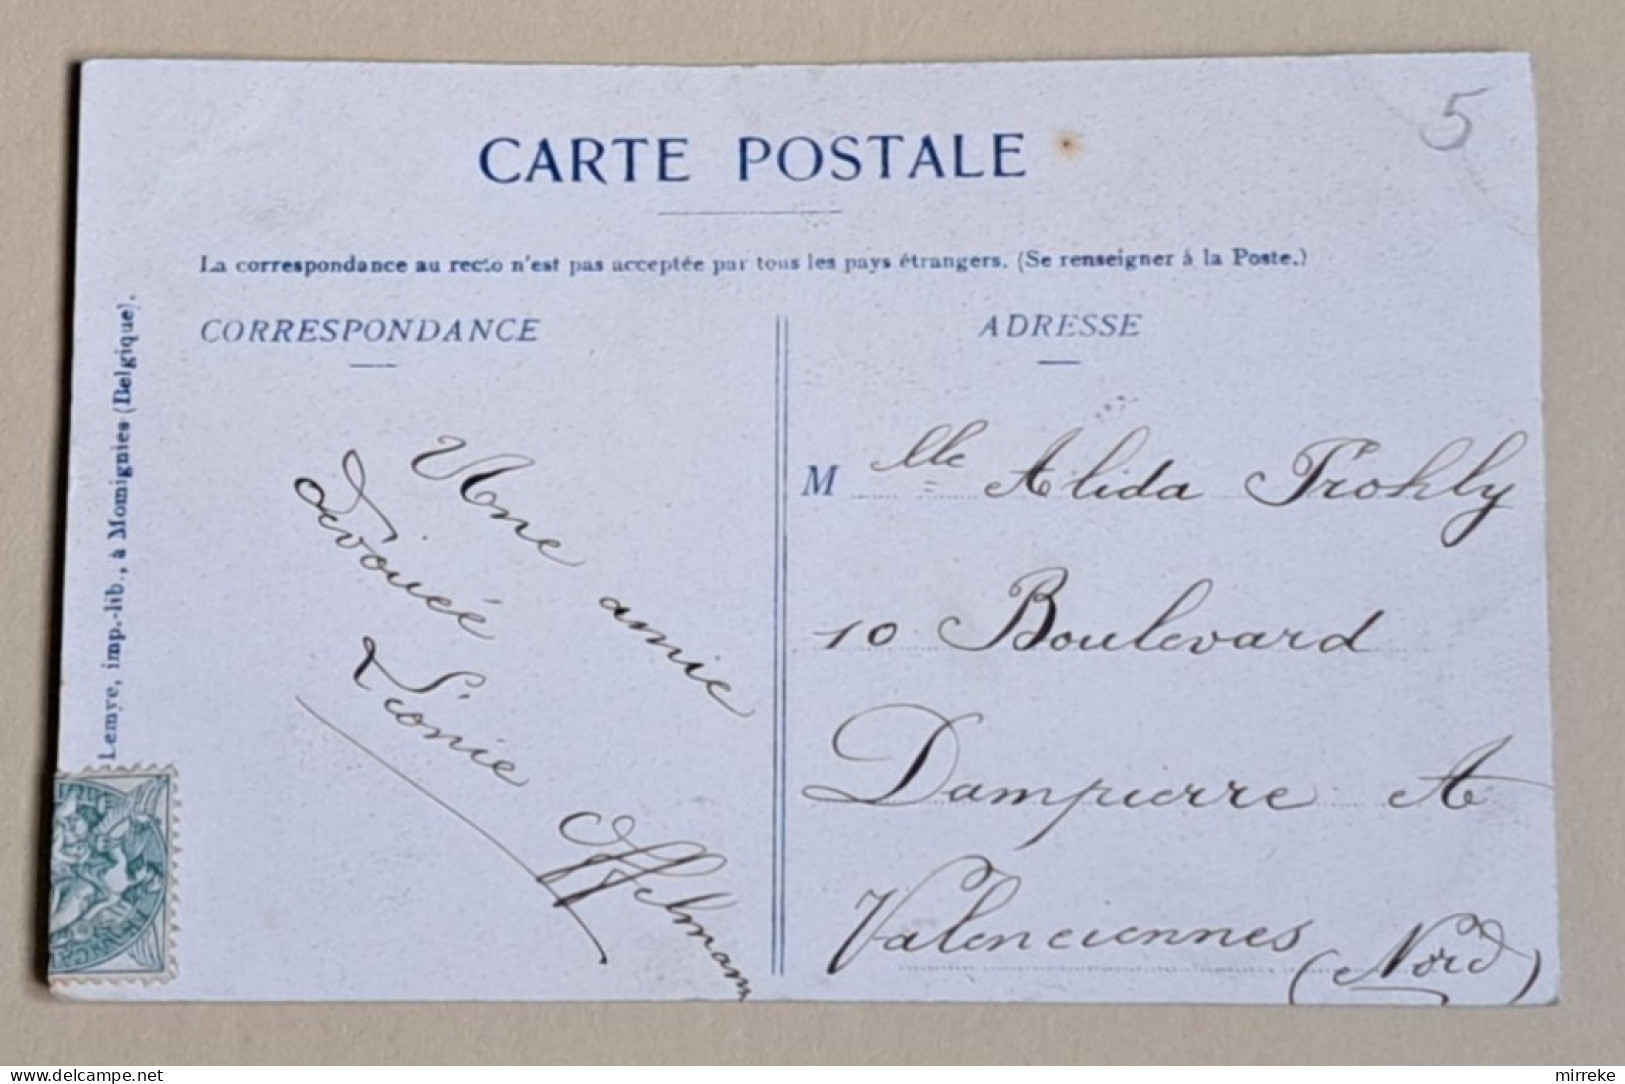 5
CARTE POSTALE
La correspondance au recto n'est pas acceptée par tous les pays étrangers. (Se renseigner à la Poste.)
CORRESPONDANCE
Une amie
dévouée
Léonie Offelmann
Lemye, imp.-lib., à Momignies (Belgique).
ADRESSE
Mlle Alida Trohly
10 Boulevard
Dampierre A
Valenciennes
(Nord)
delcampe.net
mirreke